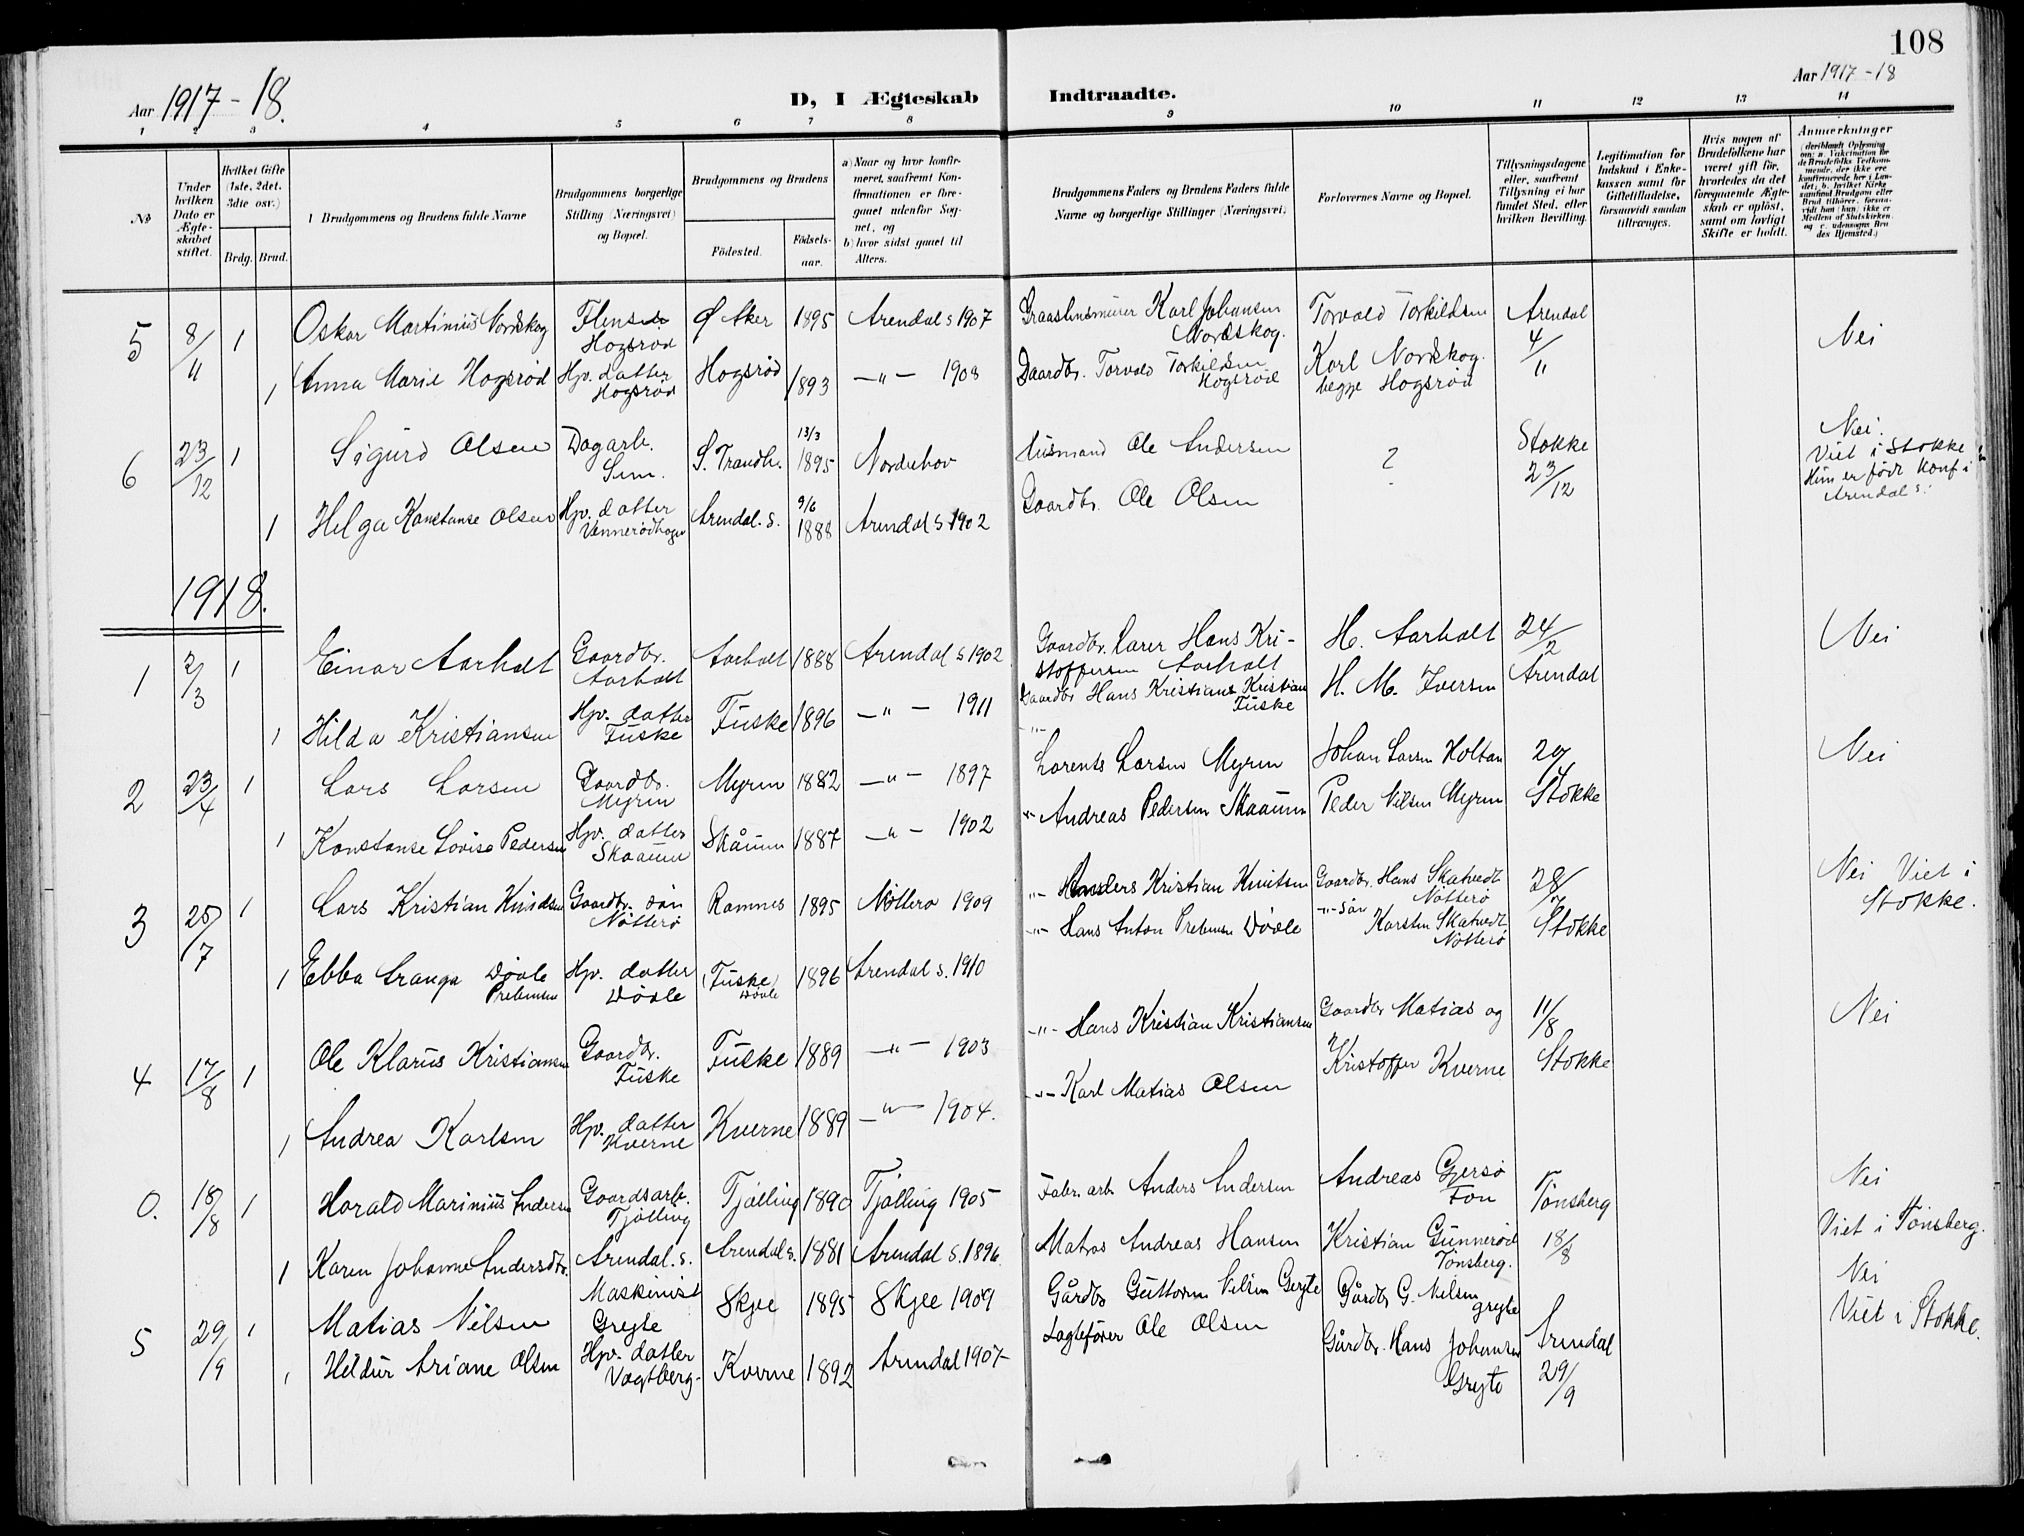 108
Aar 1917-18.
D, I Ægteskab Indtraadte.
Aar 1917-18
1 2 3 4 5 6 7 8 9 10 11 12 13 14
No
Under hvilken Dato er Ægteskabet stiftet.
Hvilket Gifte (1ste, 2det, 3die osv.)
Brdg. Brud.
Brudgommens og Brudens fulde Navne
Brudgommens borgerlige Stilling (Næringsvei) og Bopæl.
Brudgommens og Brudens
Födested.
Födselsaar.
a) Naar og hvor konfirmeret, saafremt Konfirmationen er foregaaet udenfor Sognet, og
b) hvor sidst gaaet til Alters.
Brudgommens Faders og Brudens Faders fulde Navne og borgerlige Stillinger (Næringsvei)
Forlovernes Navne og Bopæl.
Tillysningsdagene eller, saafremt Tillysning ei har fundet Sted, efter hvilken Bevilling.
Legitimation for Indskud i Enkekassen samt for Giftetilladelse, forsaavidt saadan tiltrænges.
Hvis nogen af Brudefolkene har været gift før, hvorledes da det foregaaende Ægteskab er oplöst, samt om lovligt Skifte er holdt.
Anmærkninger
5 8/11 1 Oskar Martinius Nordskog
Hogsrød
Ø Aker 1895 Arendal s 1907
Karl Johansen Nordskog.
Torvald Torkildsen
Arendal 4/11
Nei
1 Anna Marie Hogsrød
Hjv. datter Hogsrød
Hogsrød 1893 —"— 1908
Gaardbr. Torvald Torkildsen Hogsrød
Karl Nordskog. begge Hogsrød
6 23/12 1 Sigurd Olsen
Dagarb. Sem.
S. Trondh. 13/3 1895
Norderhov
Husmand Ole Andersen
?
Stokke 23/12
Nei. Viet i Stokke
Hun er født Konf i Arendal s.
1 Helga Konstanse Olsen
Hjv. datter
Arendal. s. 9/6 1888 Arendal s 1902
Gaardbr. Ole Olsen
1918.
1 2/3 1 Einar Aarholt
Gaardbr. Aarholt
Aarholt 1888 Arendal s 1902
Gaardbr. Lærer Hans Kristoffersen Aarholt
H. Aarholt
24/2 Arendal
Nei
1 Hilda Kristiansen
Hjv. datter Fuske
Fuske 1896 —"— 1911
Gaardbr Hans Kristians Kristian Fuske
H. M. Iversen
2 23/4 1 Lars Larsen
Gaardbr. Myren
Myren 1882 —"— 1897
—"— Lorents Larsen Myren
Johan Larsen Holtan
Stokke
Nei
1 Konstanse Lovise Pedersen
Hjv. datter Skaaum
Skåum 1887 —"— 1902
" Andreas Pedersen Skaaum
Peder Nilsen Myren
3 25/7 1 Lars Kristian Knudsen
Gaardbr. søn Nøtterø
Ramnes 1895 Nøtterø 1909
—"— Anders Kristian Knutsen
Gaardbr. Hans Skatvedt Nøtterø
28/7 Stokke
Nei Viet i Stokke.
1 Ebba Døvle Prebensen
Hjv. datter Døvle
Fuske Døvle 1896 Arendal s. 1910
—"— Hans Anton Prebensen Døvle
—"— søn Karsten Skatvedt. Nøtterø
4 17/8 1 Ole Klarus Kristiansen
Gaardbr. Fuske
Fuske 1889 —"— 1903
—"— Hans Kristian Kristiansen
Gaardbr Matias og
11/8 Stokke
Nei
1 Andrea Karlsen
Hjv. datter Kverne
Kverne 1889 —"— 1904.
—"— Karl Matias Olsen
Kristoffer Kverne
0. 18/8 1 Harald Marinius Andersen
Gaardsarb. Tjølling
Tjølling 1890 Tjølling 1905
Fabr. arb. Anders Andersen
Andreas Gjersø Fon
Tønsberg 18/8
Nei
Viet i Tønsberg.
1 Karen Johanne Andersdtr.
Arendal. s.
Arendal s. 1881 Arendal s. 1896.
Matros Andreas Hansen
Kristian Gunnerød Tønsberg.
5 29/9 1 Matias Nilsen
Maskinist Greyte
Skjee 1895 Skjee 1909
Gårdbr Guttorm Nilsen Greyte
Gårdbr G. Nilsen greyte
Arendal 29/9
Nei
Viet i Stokke.
1 Heldur Ariane Olsen
Hjv. datter Vogtberg.
Kverne 1892 Arendal 1907
Ole Olsen
Gårdbr. Hans Johansen Greyte